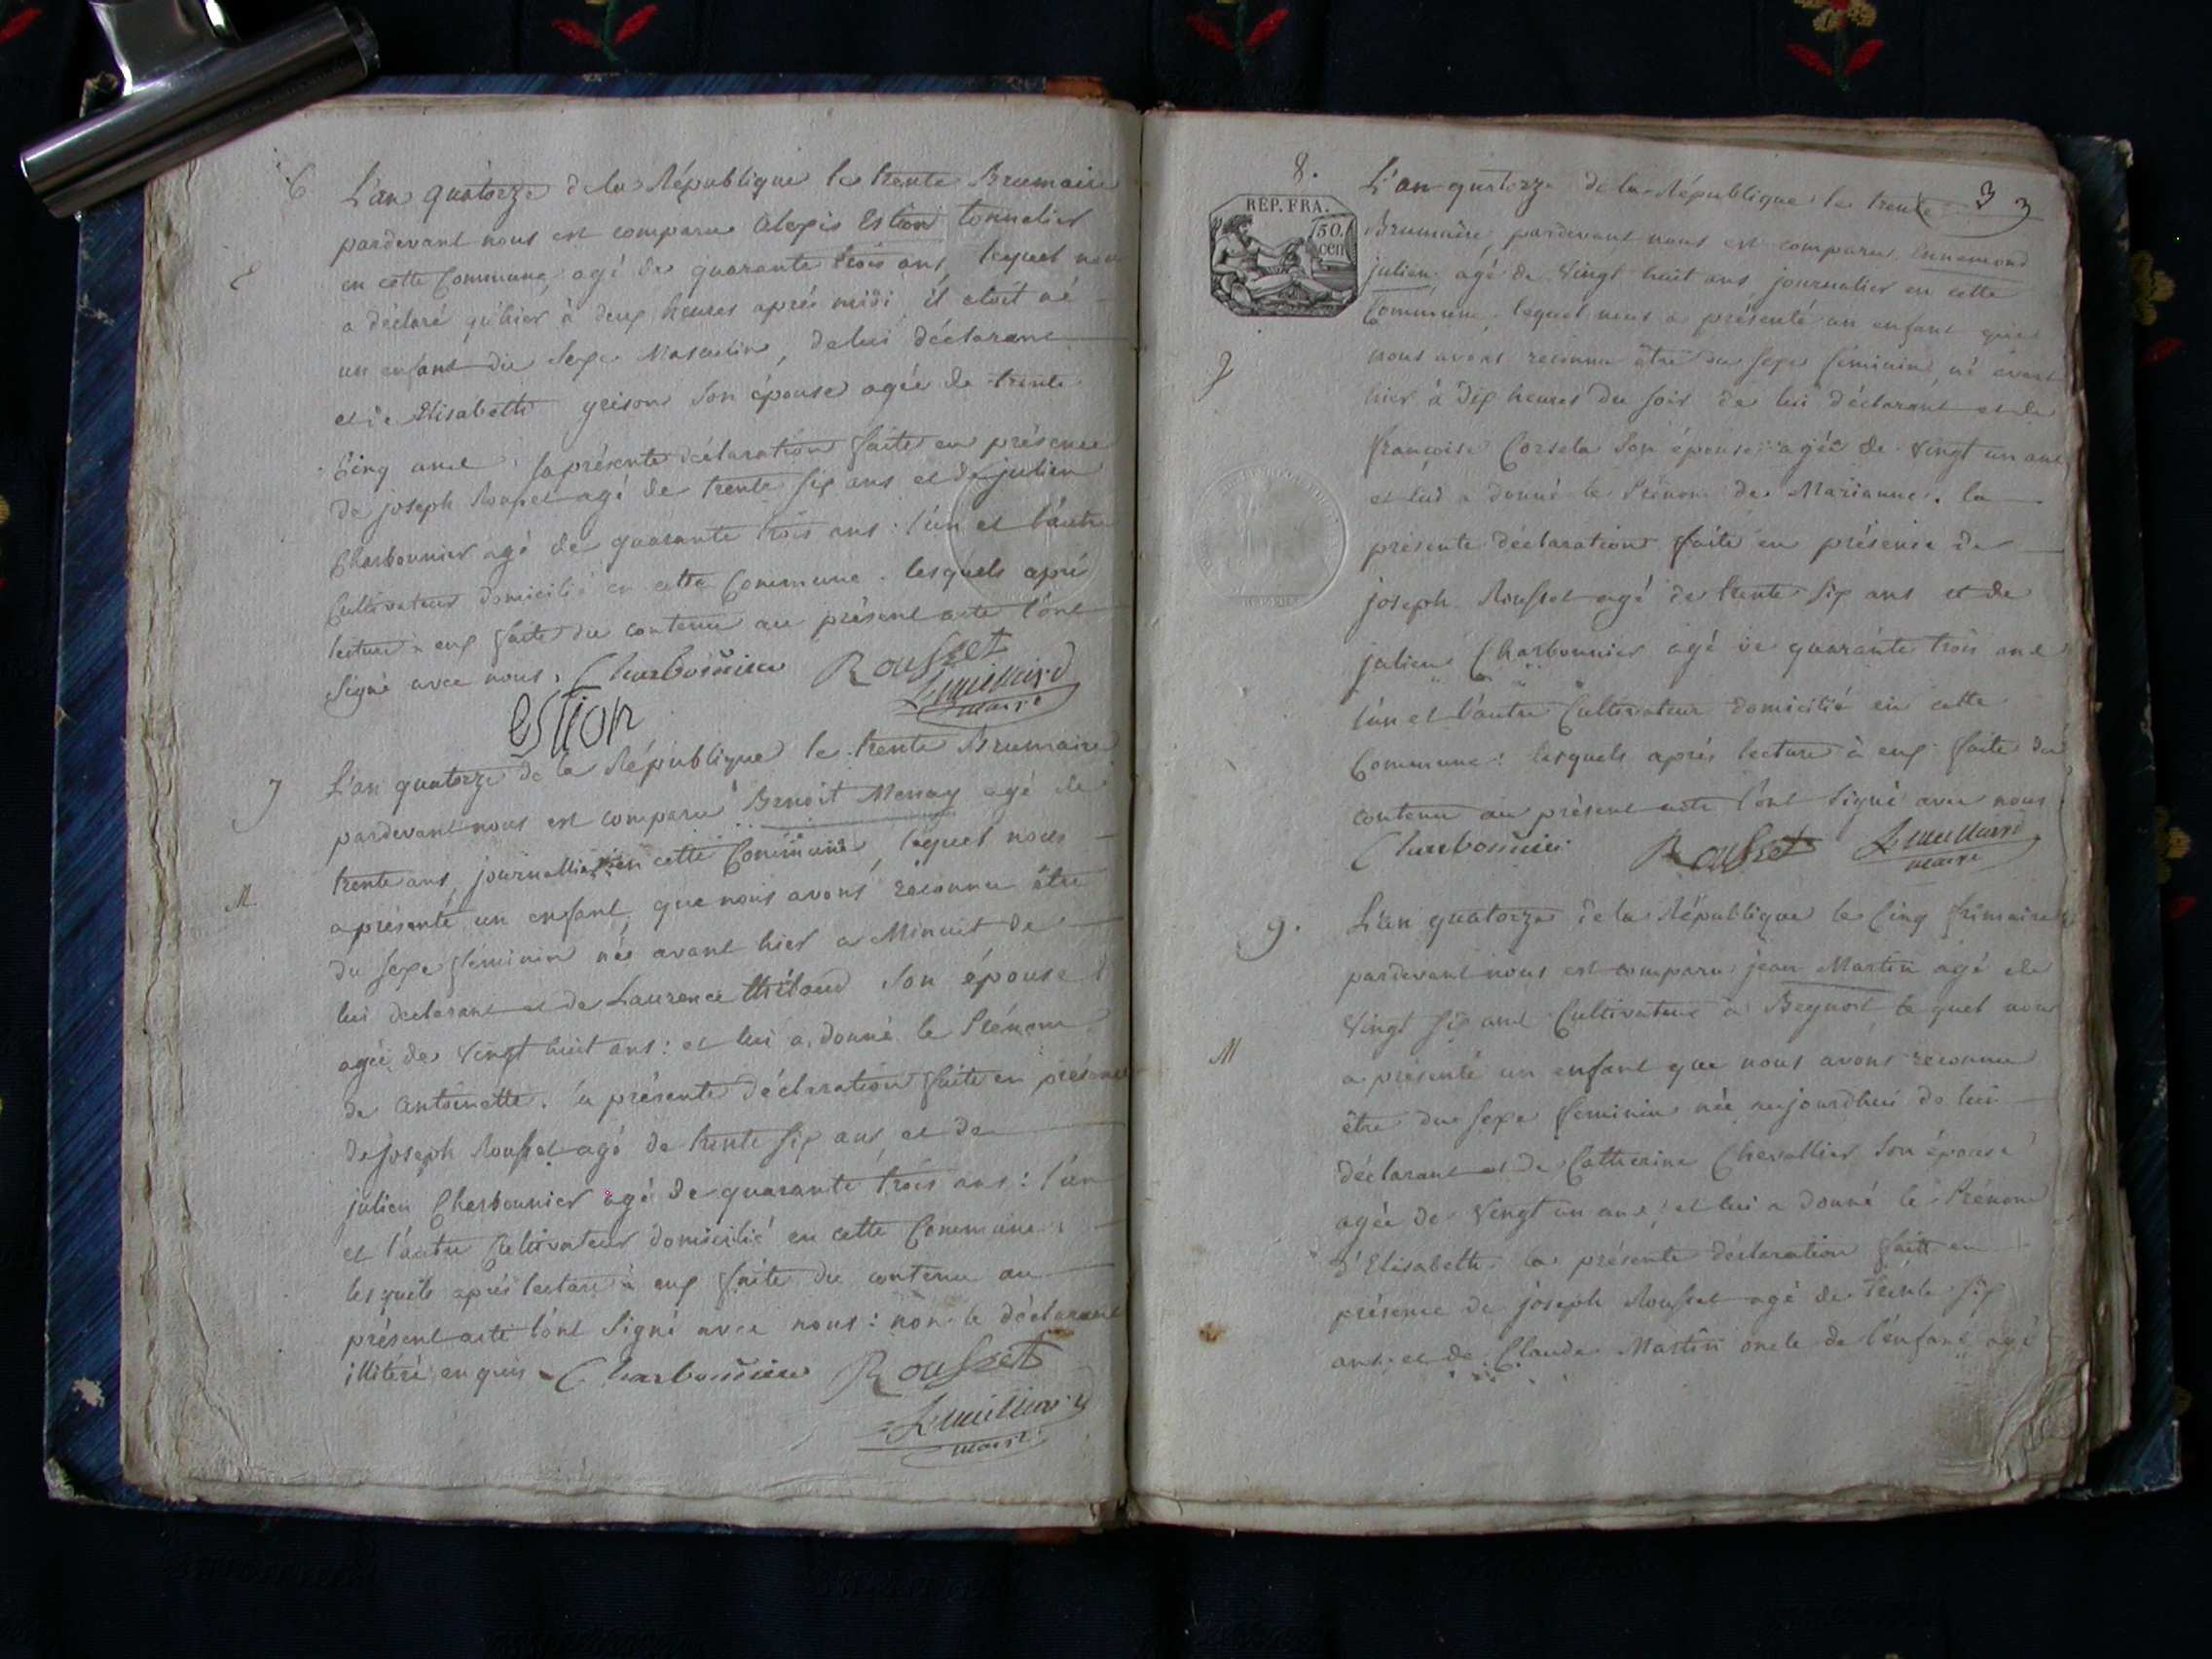 6 L'an quatorze de la République le trente Brumaire
pardevant nous est comparu alexis Estion tonnelier
E
en cette Commune, agé de quarante trois ans, lequel nous
a déclaré qu'hier à deux heures après midi, il etoit né
un enfant du sexe Masculin, de lui déclarant
et de Elisabeth grison son épouse agée de trente
Cinq ans. la présente déclaration faite en présence
de joseph Rousset agé de trente six ans et de julien
Charbonnier agé de quarante trois ans : l'un et l'autre
Cultivateur domicilié en cette Commune. lesquels aprés
lecture à eux faite du contenu au présent acte l'ont
Signé avec nous. Charbonnier Rousset
maire
estion
7 L'an quatorze de la République le trente Brumaire
pardevant nous est comparu Benoit agé de
trente ans, journallier en cette Commune, lequel nous
M
a présenté un enfant, que nous avons reconnu être
du sexe féminin née avant hier a Minuit de
lui declarant et de Laurence son épouse
agée de vingt huit ans : et lui a donné le Prénom
de antoinette. la présente déclaration faite en présence
de Joseph Rousset agé de trente six ans, et de
julien Charbonnier agé de quarante trois ans : l'un
et l'autre Cultivateur domicilié en cette Commune.
lesquels aprés lecture à eux faite du contenu au
présent acte l'ont Signé avec nous : non le déclarant
illiteré enquis Charbonnier Rousset
maire
8. L'an quatorze de la République le trente 3 3
REP. FRA.
50. cen
Brumaire, pardevant nous est comparu Ennemond
julien, agé de vingt huit ans, journalier en cette
Commune, lequel nous a présenté un enfant que
J
nous avons reconnu être du sexe féminin, né avant
hier à dix heures du soir de lui déclarant et de
françoise son épouse, agée de vingt un ans
et lui a donné le Prénom de Marianne. la
présente déclaration faite en présence de
joseph Rousset agé de trente six ans et de
julien Charbonnier agé de quarante trois ans
l'un et l'autre Cultivateur domicilié en cette
Commune : lesquels aprés lecture à eux faite du
contenu au présent acte l'ont Signé avec nous.
Charbonnier Rousset
maire
9. L'an quatorze de la République le Cinq frimaire
pardevant nous est comparu jean Martin agé de
vingt six ans Cultivateur à Beynost lequel nous
M
a présenté un enfant que nous avons reconnu
être du sexe feminin née aujourdhui de lui
déclarant et de Catherine Chevallier Son épouse
agée de vingt un ans, et lui a donné le Prénom
d'Elisabeth. la présente déclaration faite en
présence de joseph Rousset agé de trente six
ans. et de Claude Martin oncle de l'enfant agé